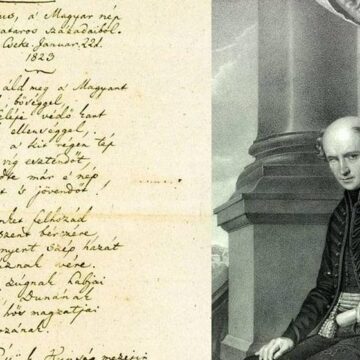 us, a Magyar nép
zataros századaiból.
Cseke Januar. 22d.
1823
áld meg a Magyart
bőséggel,
feléje védő kart
ellenséggel,
a kit régen tép
víg esztendőt,
már e nép
t s jövendőt!
inket felhozád
szent bérczére,
nyert szép hazát
áznak vére.
zúgnak habjai
Dunának
hős magzatjai
ozának.
Kunság mezein